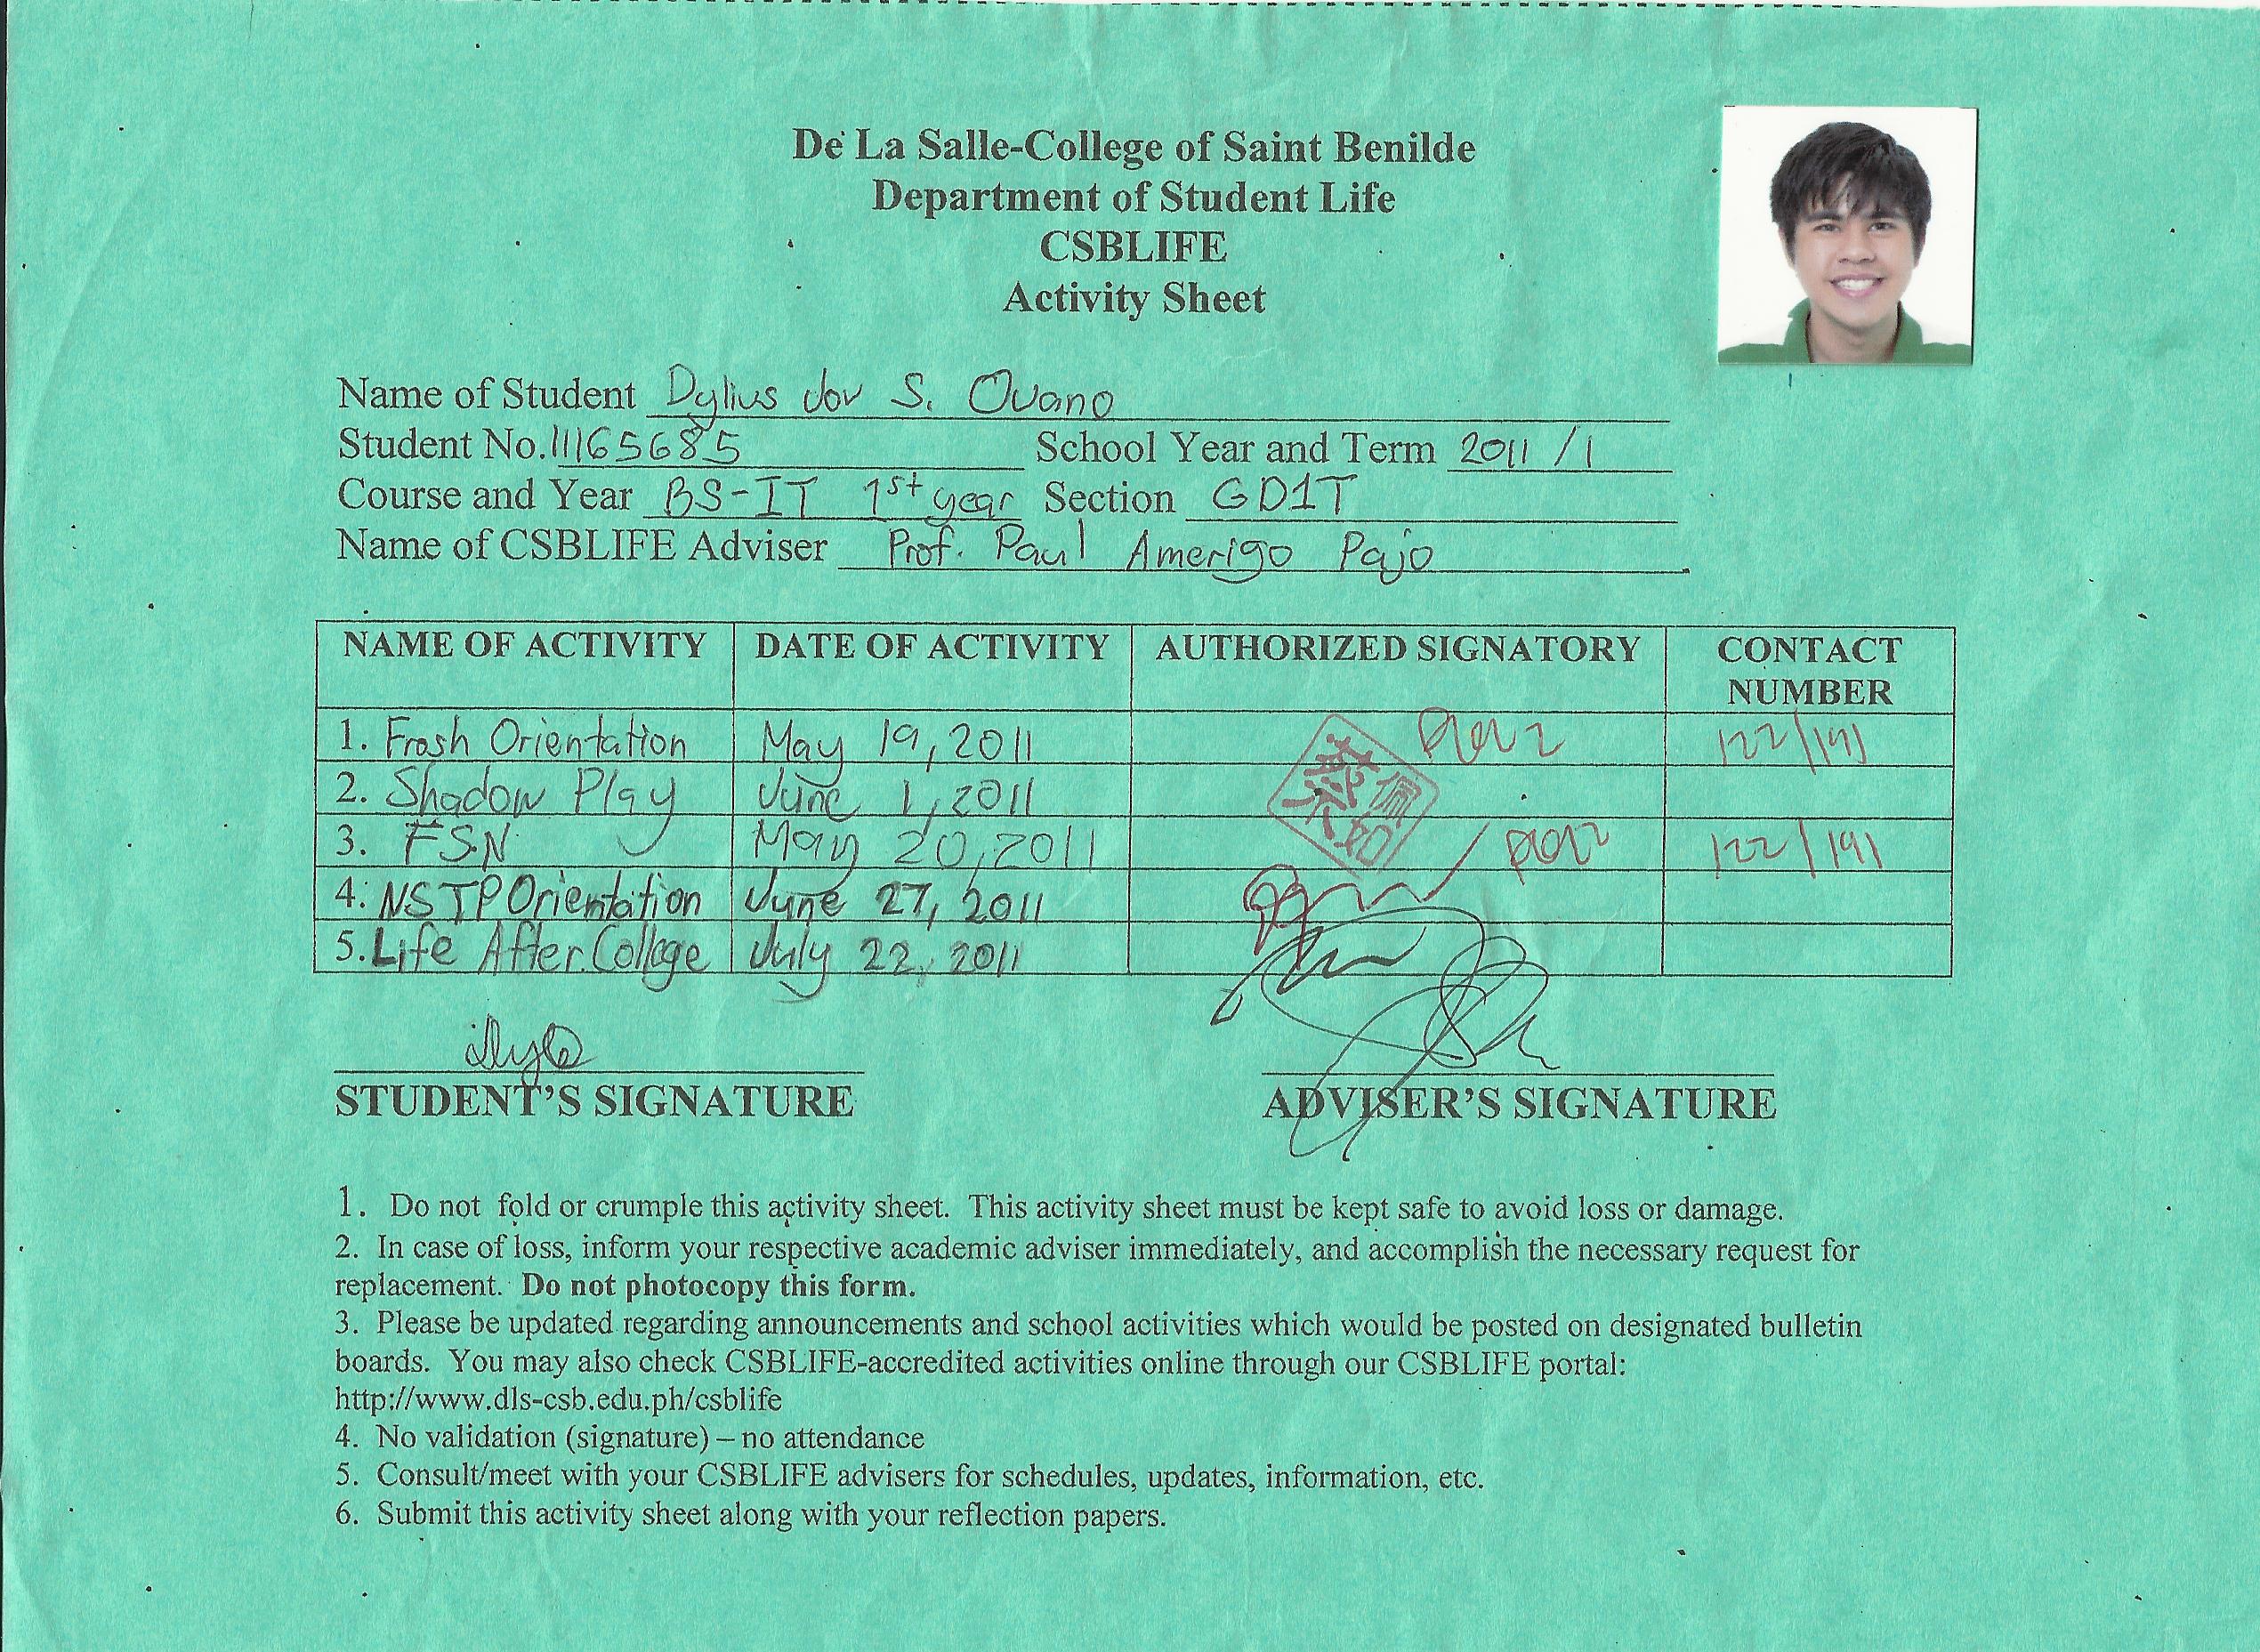 De La Salle-College of Saint Benilde
Department of Student Life
CSBLIFE
Activity Sheet
Name of Student Dylius Jov S. Ovano
Student No. 11165685 School Year and Term 2011 / 1
Course and Year BS-IT 1st year Section GD1T
Name of CSBLIFE Adviser Prof. Paul Amerigo Pajo
NAME OF ACTIVITY DATE OF ACTIVITY AUTHORIZED SIGNATORY CONTACT NUMBER
1. Frosh Orientation May 19, 2011 122/191
2. Shadow Play June 1, 2011
蔡佩如
3. FSN May 20, 2011 122/191
4. NSTP Orientation June 27, 2011
5. Life After College July 22, 2011
STUDENT'S SIGNATURE ADVISER'S SIGNATURE
1. Do not fold or crumple this activity sheet. This activity sheet must be kept safe to avoid loss or damage.
2. In case of loss, inform your respective academic adviser immediately, and accomplish the necessary request for
replacement. Do not photocopy this form.
3. Please be updated regarding announcements and school activities which would be posted on designated bulletin
boards. You may also check CSBLIFE-accredited activities online through our CSBLIFE portal:
http://www.dls-csb.edu.ph/csblife
4. No validation (signature) – no attendance
5. Consult/meet with your CSBLIFE advisers for schedules, updates, information, etc.
6. Submit this activity sheet along with your reflection papers.